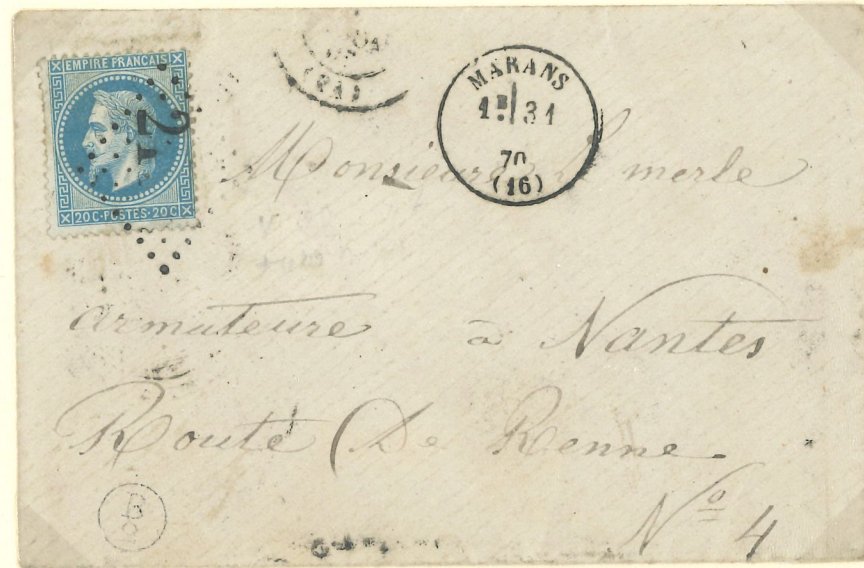 EMPIRE FRANÇAIS
20C·POSTES·20C
MARANS
1E 31
70
(16)
Monsieure le merle
armuteure à Nantes
Route De Renne
No 4
B